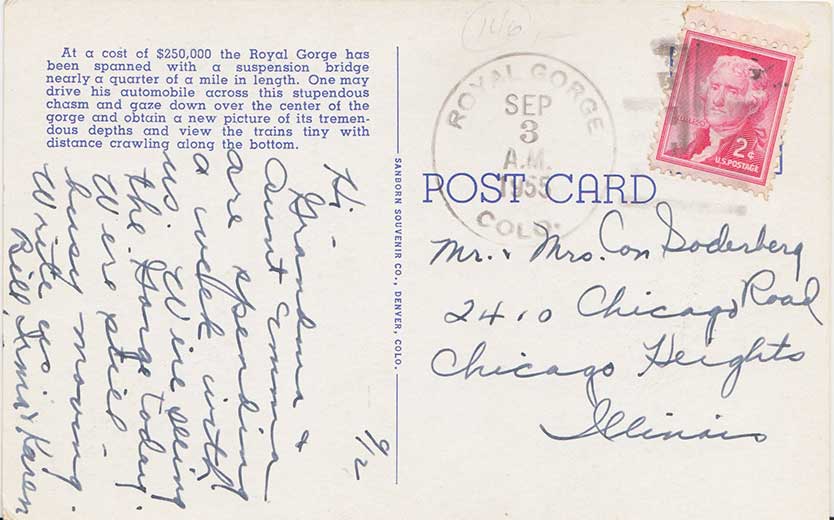 At a cost of $250,000 the Royal Gorge has
been spanned with a suspension bridge
nearly a quarter of a mile in length. One may
drive his automobile across this stupendous
chasm and gaze down over the center of the
gorge and obtain a new picture of its tremen-
dous depths and view the trains tiny with
distance crawling along the bottom.
9/2
Hi -
Grandma &
Aunt Emma
are spending
a week with
us. We're seeing
the Gorge today.
We're still -
busy moving.
Write us
Bill, Irma & Karen
SANBORN SOUVENIR CO., DENVER, COLO.
146
ROYAL GORGE
SEP
3
A.M.
1955
COLO.
2¢
U.S. POSTAGE
POST CARD
Mr. & Mrs. Con Soderberg
2410 Chicago Road
Chicago Heights
Illinois